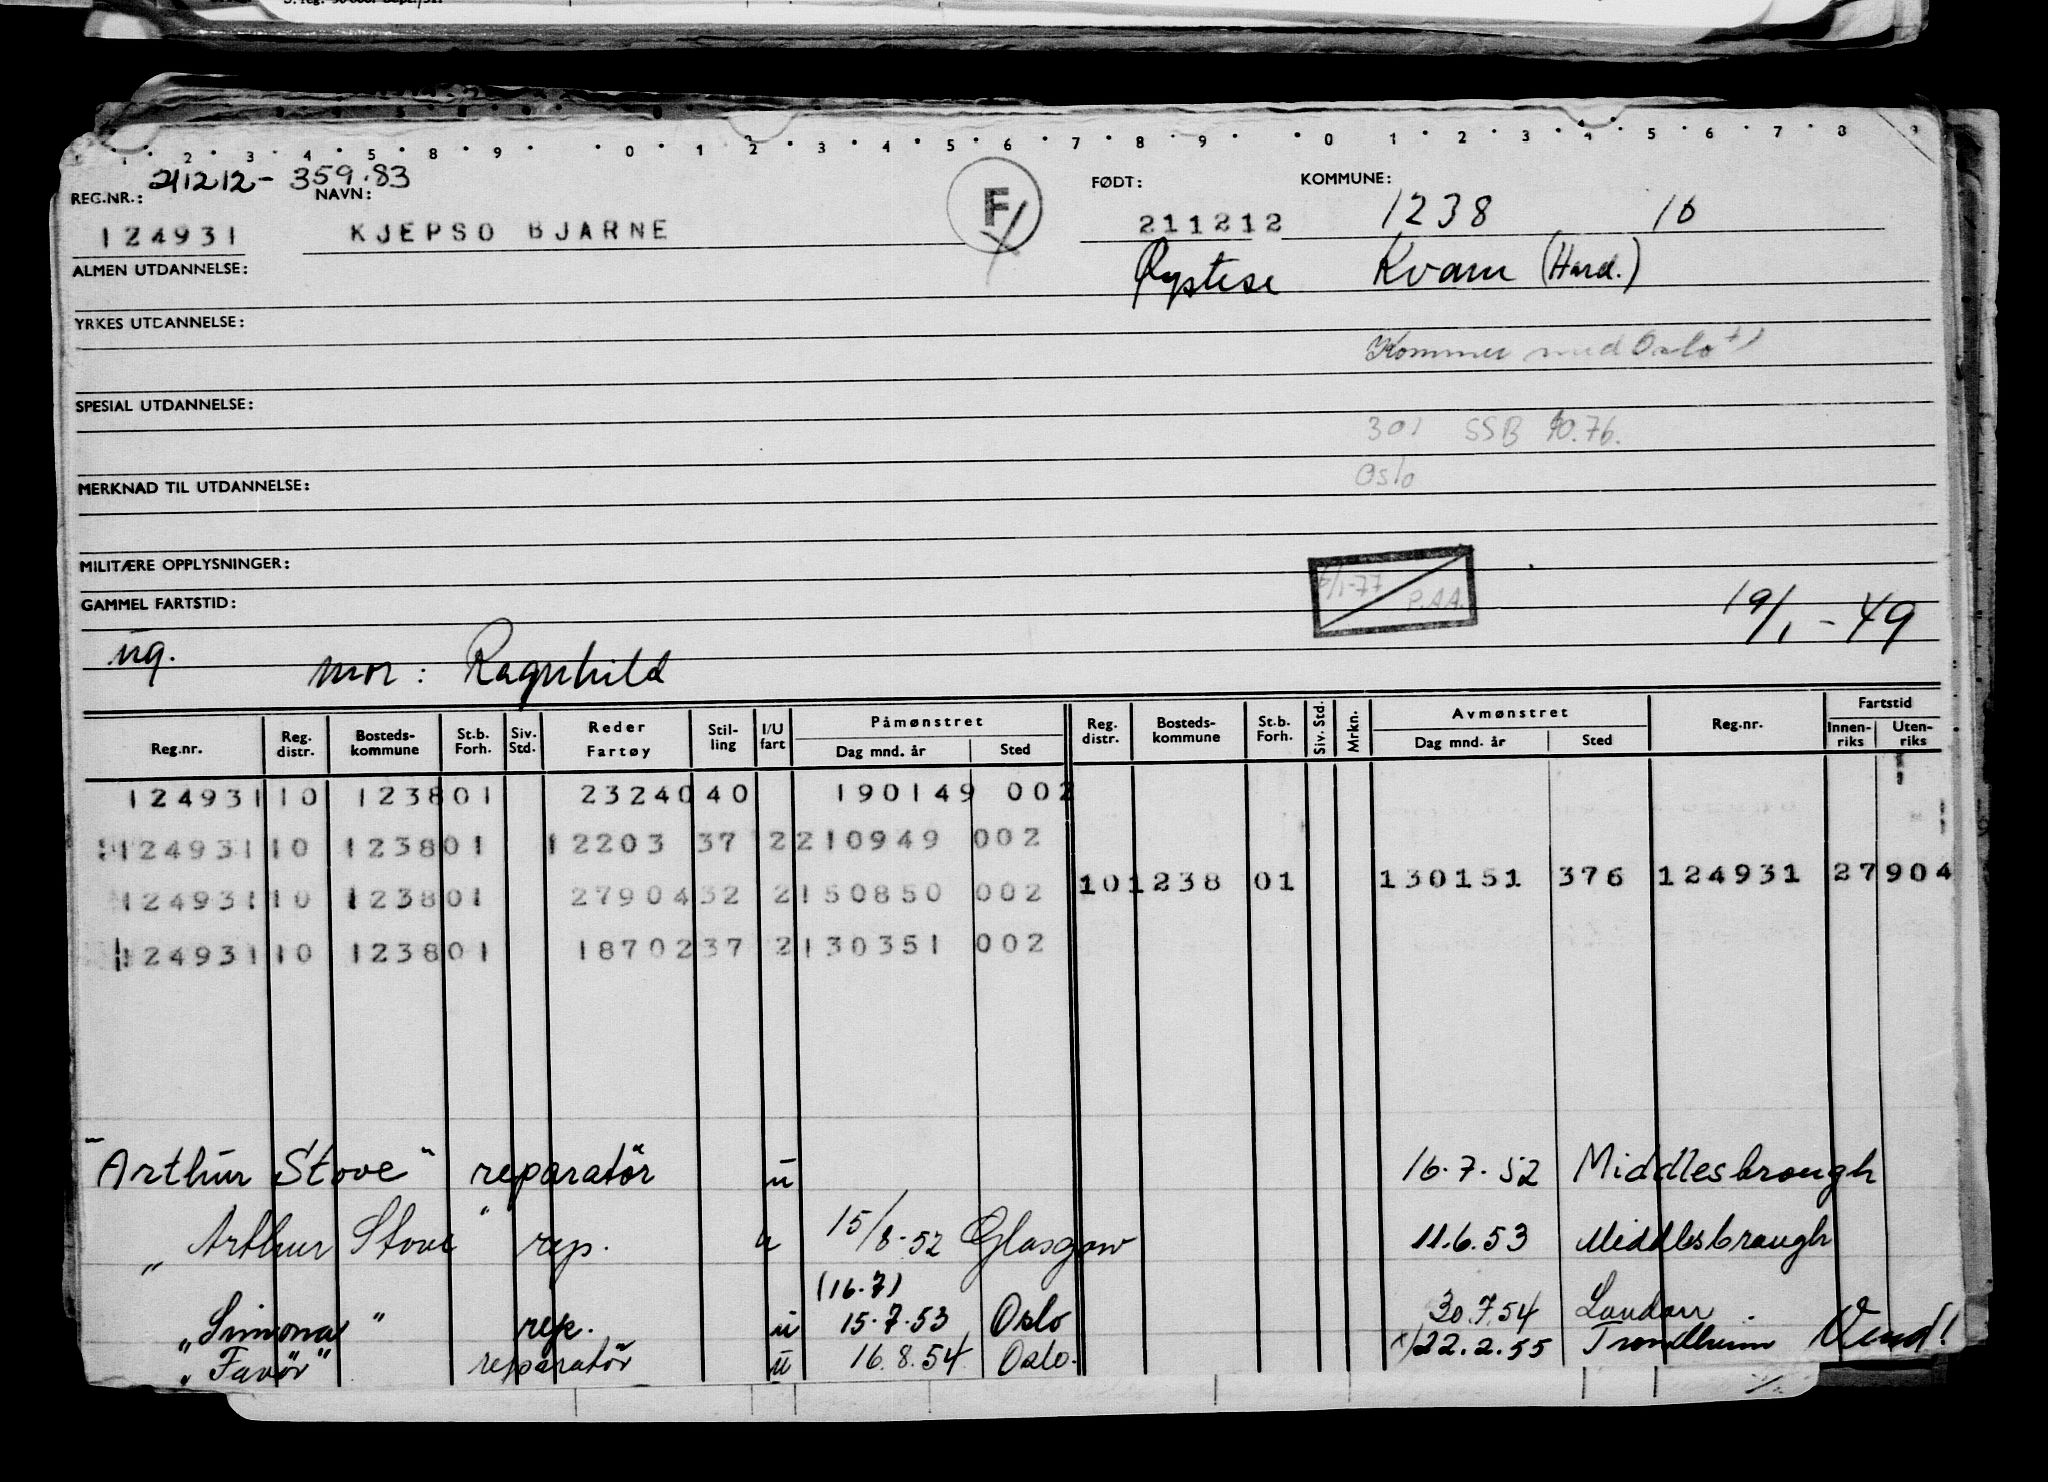 1 2 3 4 5 8 9 0 1 2 3 4 5 6 7 8 9 0 1 2 3 4 5 6 7 8 9
211212- 359.83
REG.NR.: NAVN: F FØDT: KOMMUNE:
124931 KJEPSO BJARNE 211212 1238 10
ALMEN UTDANNELSE: Øystese Kvam (Hard.)
YRKES UTDANNELSE:
Kommer med Oslo
SPESIAL UTDANNELSE:
301 SSB 10.76.
Oslo
MERKNAD TIL UTDANNELSE:
MILITÆRE OPPLYSNINGER:
/1-77 P.A.A.
GAMMEL FARTSTID: 19/1-49
ug. mor: Ragnhild
Reg.nr. Reg. distr. Bosteds-kommune St.b. Forh. Siv. Std. Reder Fartøy Stil-ling I/U fart Påmønstret Dag mnd. år Sted Reg. distr. Bosteds-kommune St.b. Forh. Siv. Std. Mrkn. Avmønstret Dag mnd. år Sted Reg.nr. Fartstid Innen-riks Uten-riks
124931 10 1238 01 23240 40 190149 002
124931 10 1238 01 12203 37 2 210949 002
10 1238 01 130151 376 124931 27 904
124931 10 1238 01 27904 32 2 150850 002
124931 10 1238 01 18702 37 2 130351 002
"Arthur Stove" reparatör u 16.7.52 Middlesbrough
"Arthur Stove" rep. u 15/8-52 Glasgow 11.6.53 Middlesbrough
(16.7)
"Simona" rep. u 15.7.53 Oslo 30.7.54 London
"Favör" reparatör u 16.8.54 Oslo. x/22.2.55 Trondheim Vend!